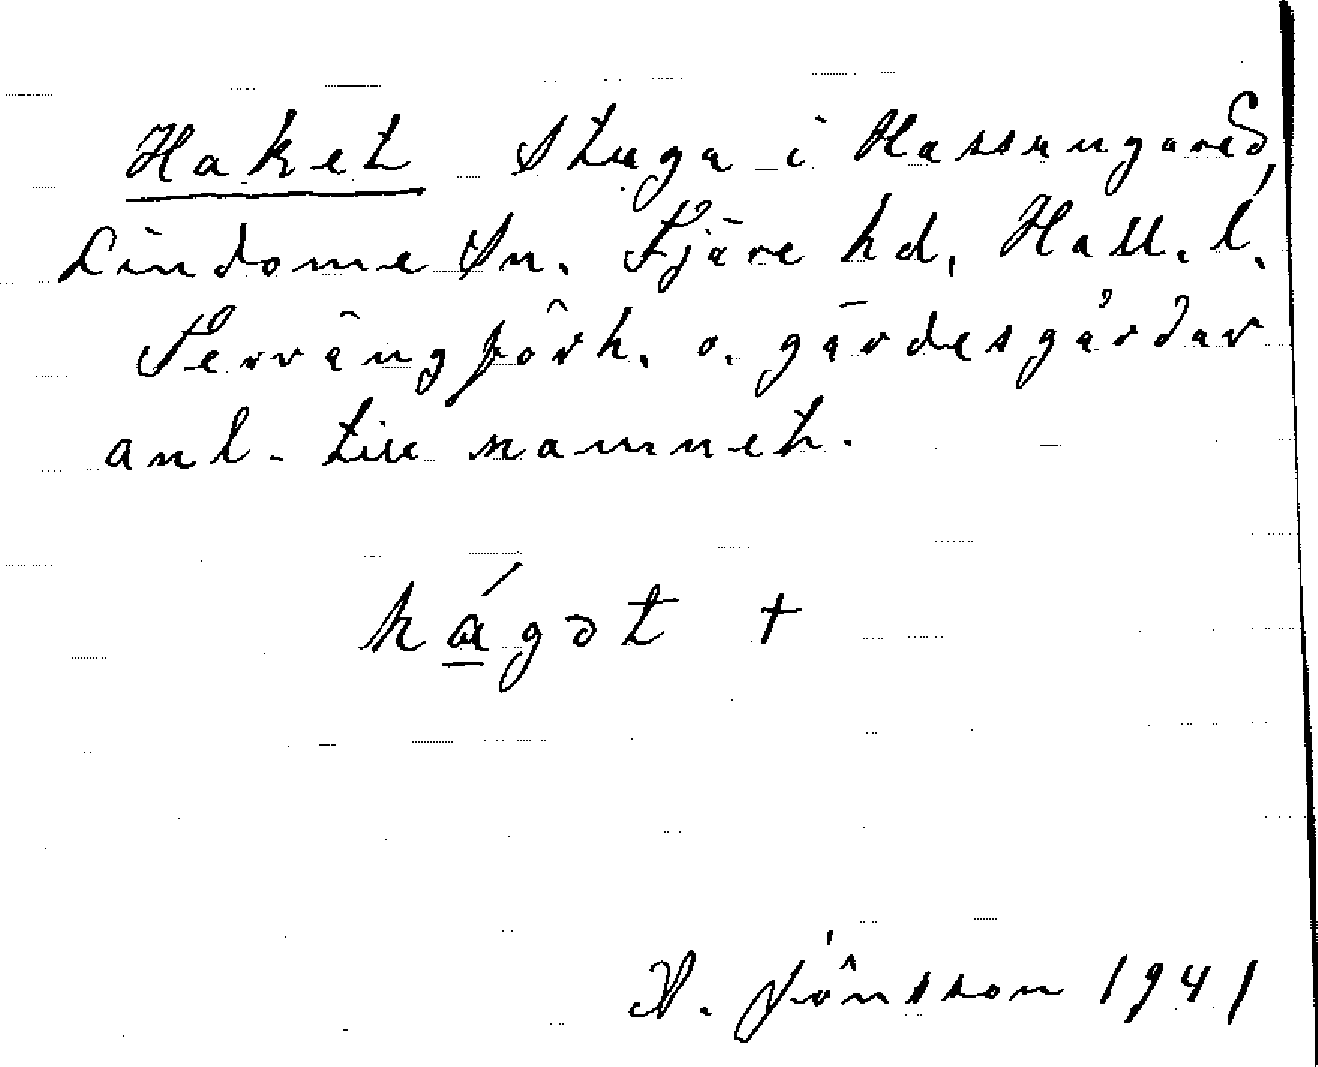 Haket Stuga i Hassungared,
Lindome Sn. Fjäre hd, Hall. l.
Terrängförh. o. gärdesgårdar
anl. till namnet.
hágət +
V. Jönsson 1941